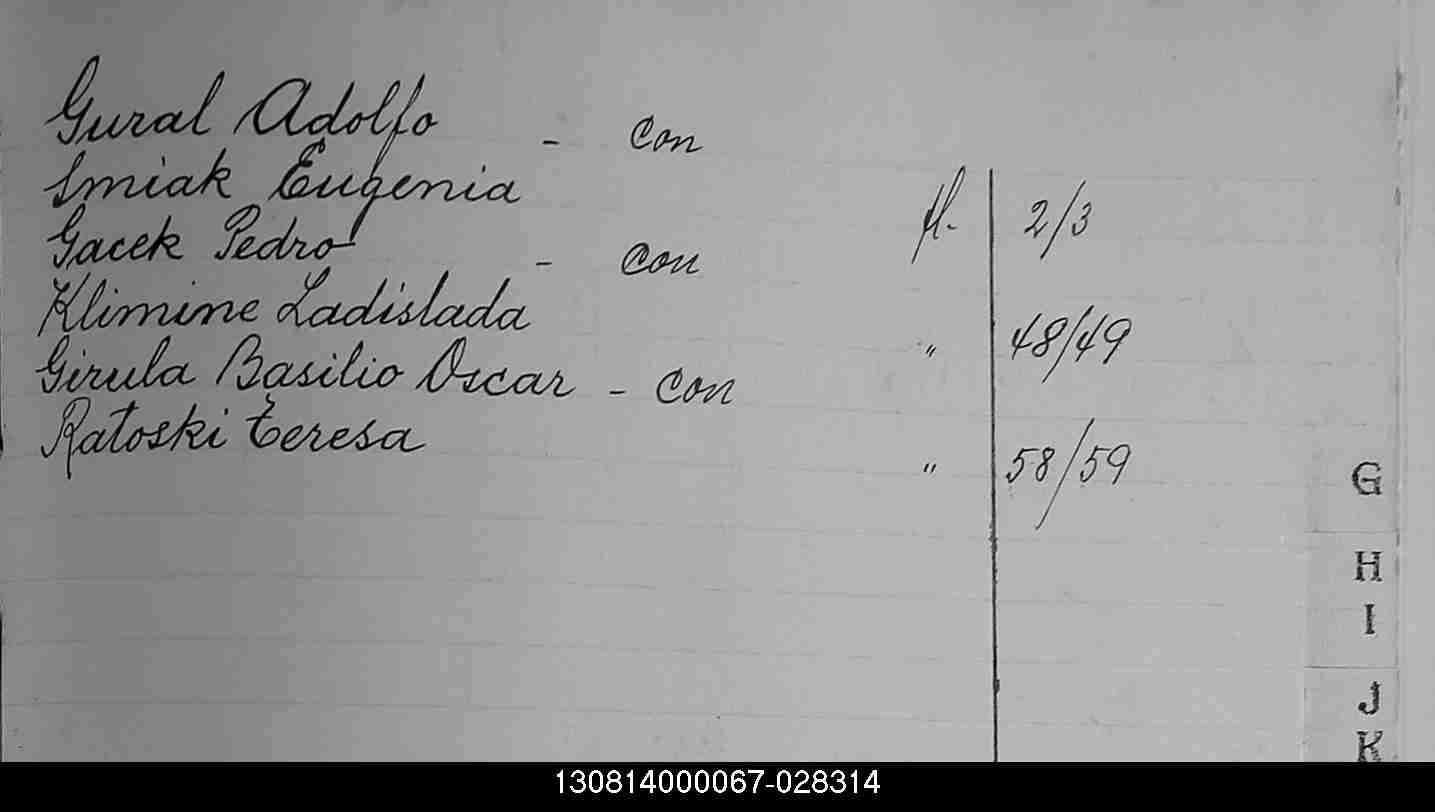 Gural Adolfo - con
Smiak Eugenia fl. 2/3
Gacek Pedro - con
Klimine Ladislada " 48/49
Girula Basilio Oscar - con
Ratoski Teresa " 58/59
G
H
I
J
K
130814000067-028314